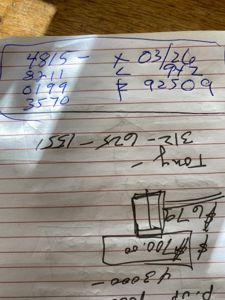 4815 - x 03/26
8211 c 942
0199 z 92509
3570
312 - 625 - 1551
Tony -
$679
$ $700.00
43000 -